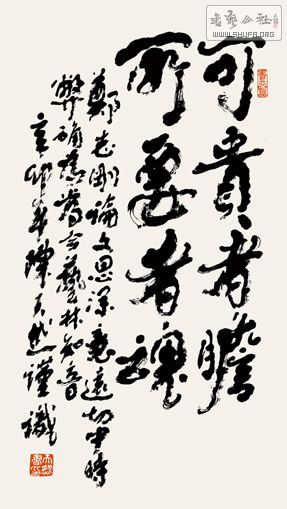 書藝公社
WWW.SHUFA.ORG
可貴者膽
所要者魂
鄭志剛論文思深意遠切中時
弊確為當今藝林知音
辛卯年陳天然謹識